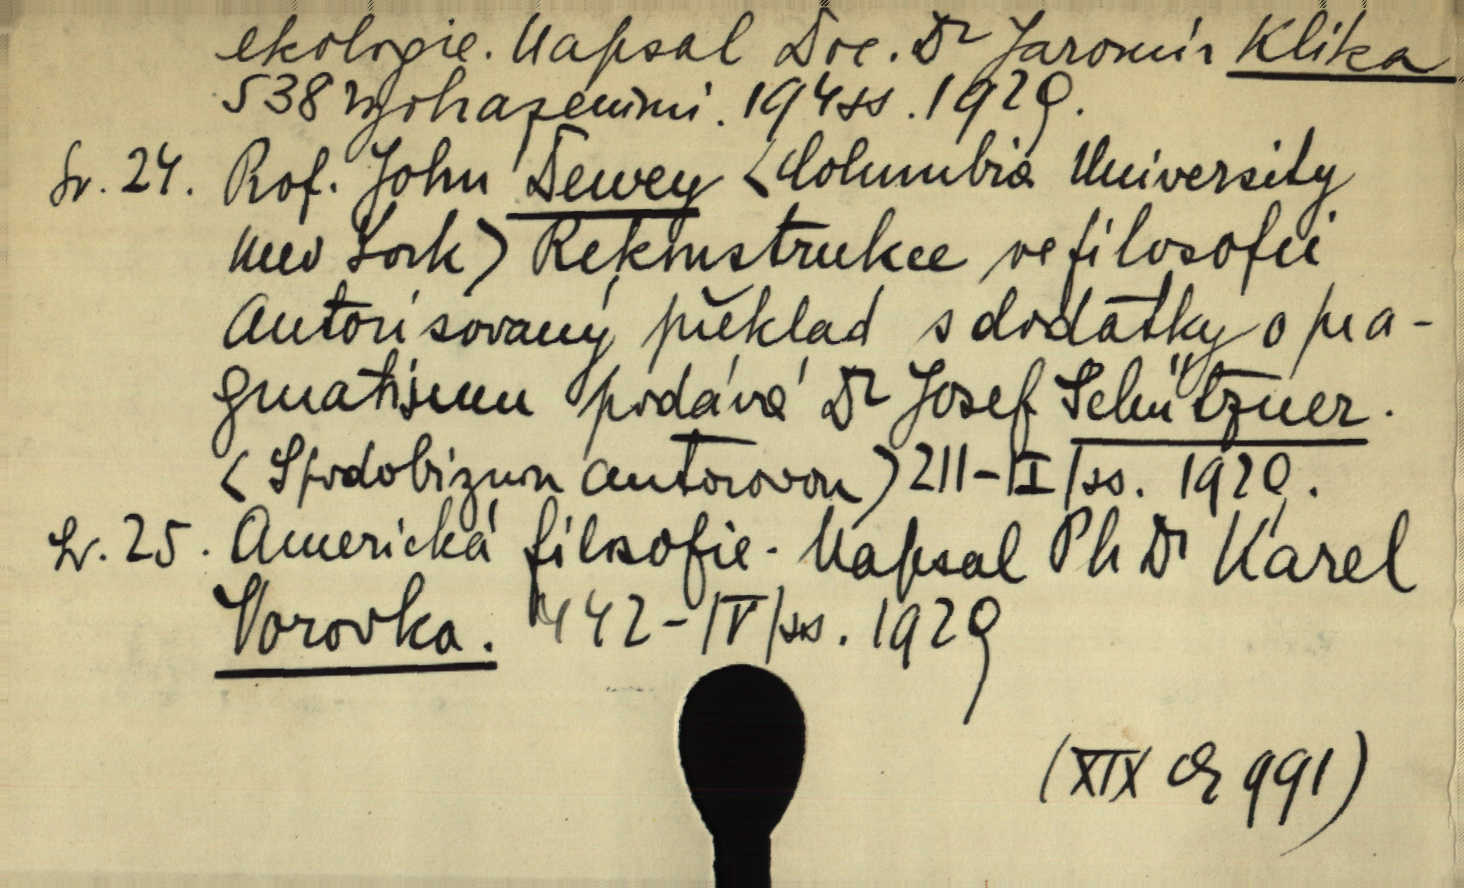 ekologie. Napsal Doc. Dr Jaromír Klika
S 38 vyobrazeními. 194 ss. 1929.
Sv. 24. Prof. John Dewey <Columbia University
New York> Rekonstrukce ve filosofii
Autorisovaný překlad s dodatky o pra-
gmatismu podává Dr Josef Schützner.
<S podobiznou autorovou> 211-|I|ss. 1929.
Sv. 25. Americká filosofie. Napsal PhDr Karel
Vorovka. 442-|IV|ss. 1929
(XIX 991)